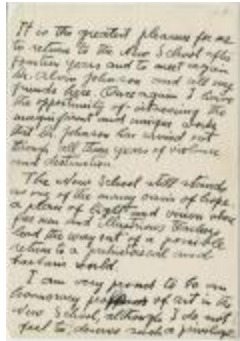 It is the greatest pleasure for me
to return to the New School after
fourteen years and to meet again
Dr. Alvin Johnson and all my
friends here. Once again I have
the opportunity of witnessing the
magnificent and unique work
that Dr. Johnson has carried out
through all these years of violence
and destruction.
The New School still stands
as one of the many oasis of hope,
a place of light and vision where
few men and illustrious teachers
lead the way out of a possible
return to a prehistorical and
barbaric world.
I am very proud to be an
honorary professor of art in the
New School, although I do not
feel to deserve such a privilege